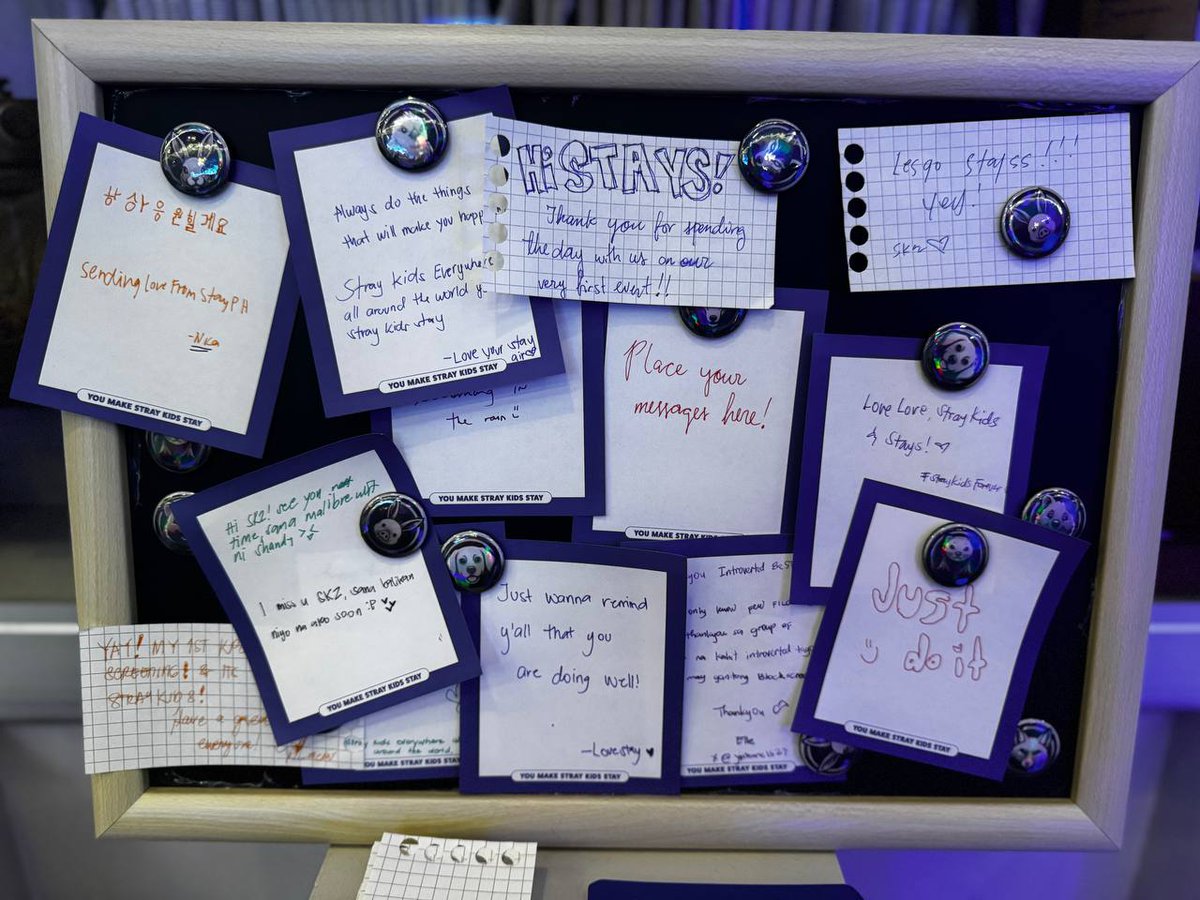 #상응원할게요
Sending love From Stay PH
-Nka
YOU MAKE STRAY KIDS STAY
Always do the things
that will make you happ
Stray kids Everywhere
all around the world y
stray kids stay
-Love your stay
YOU MAKE STRAY KIDS STAY
Hi STAYS!
Thank you for spending
the day with us on our
very first event!!
Lesgo stayss!!!
Yey!
SKZ♡
in
the rain
YOU MAKE STRAY KIDS STAY
Place your
messages here!
YOU MAKE STRAY KIDS STAY
Lore Love, Stray Kids
& Stays! ♡
#straykidsForever
Hi SKZ! see you next
time, sama malibre ult
ni shandy >
I miss u SKZ, sana balikan
niyo na ako soon :P
YOU MAKE STRAY KIDS STAY
Just wanna remind
y'all that you
are doing well!
-Love, stay ♥
YOU MAKE STRAY KIDS STAY
you Introverted Best
only know few
thankyou sa group
na kahit introverted
may
Thankyou
Elle
YOU MAKE STRAY KIDS STAY
Just
do it
YOU MAKE STRAY KIDS STAY
YAY! MY 1ST
SCREENING! &
STRAY KIDS!
Have a
stray kids everywhere
around the world.
YOU MAKE STRAY KIDS STAY